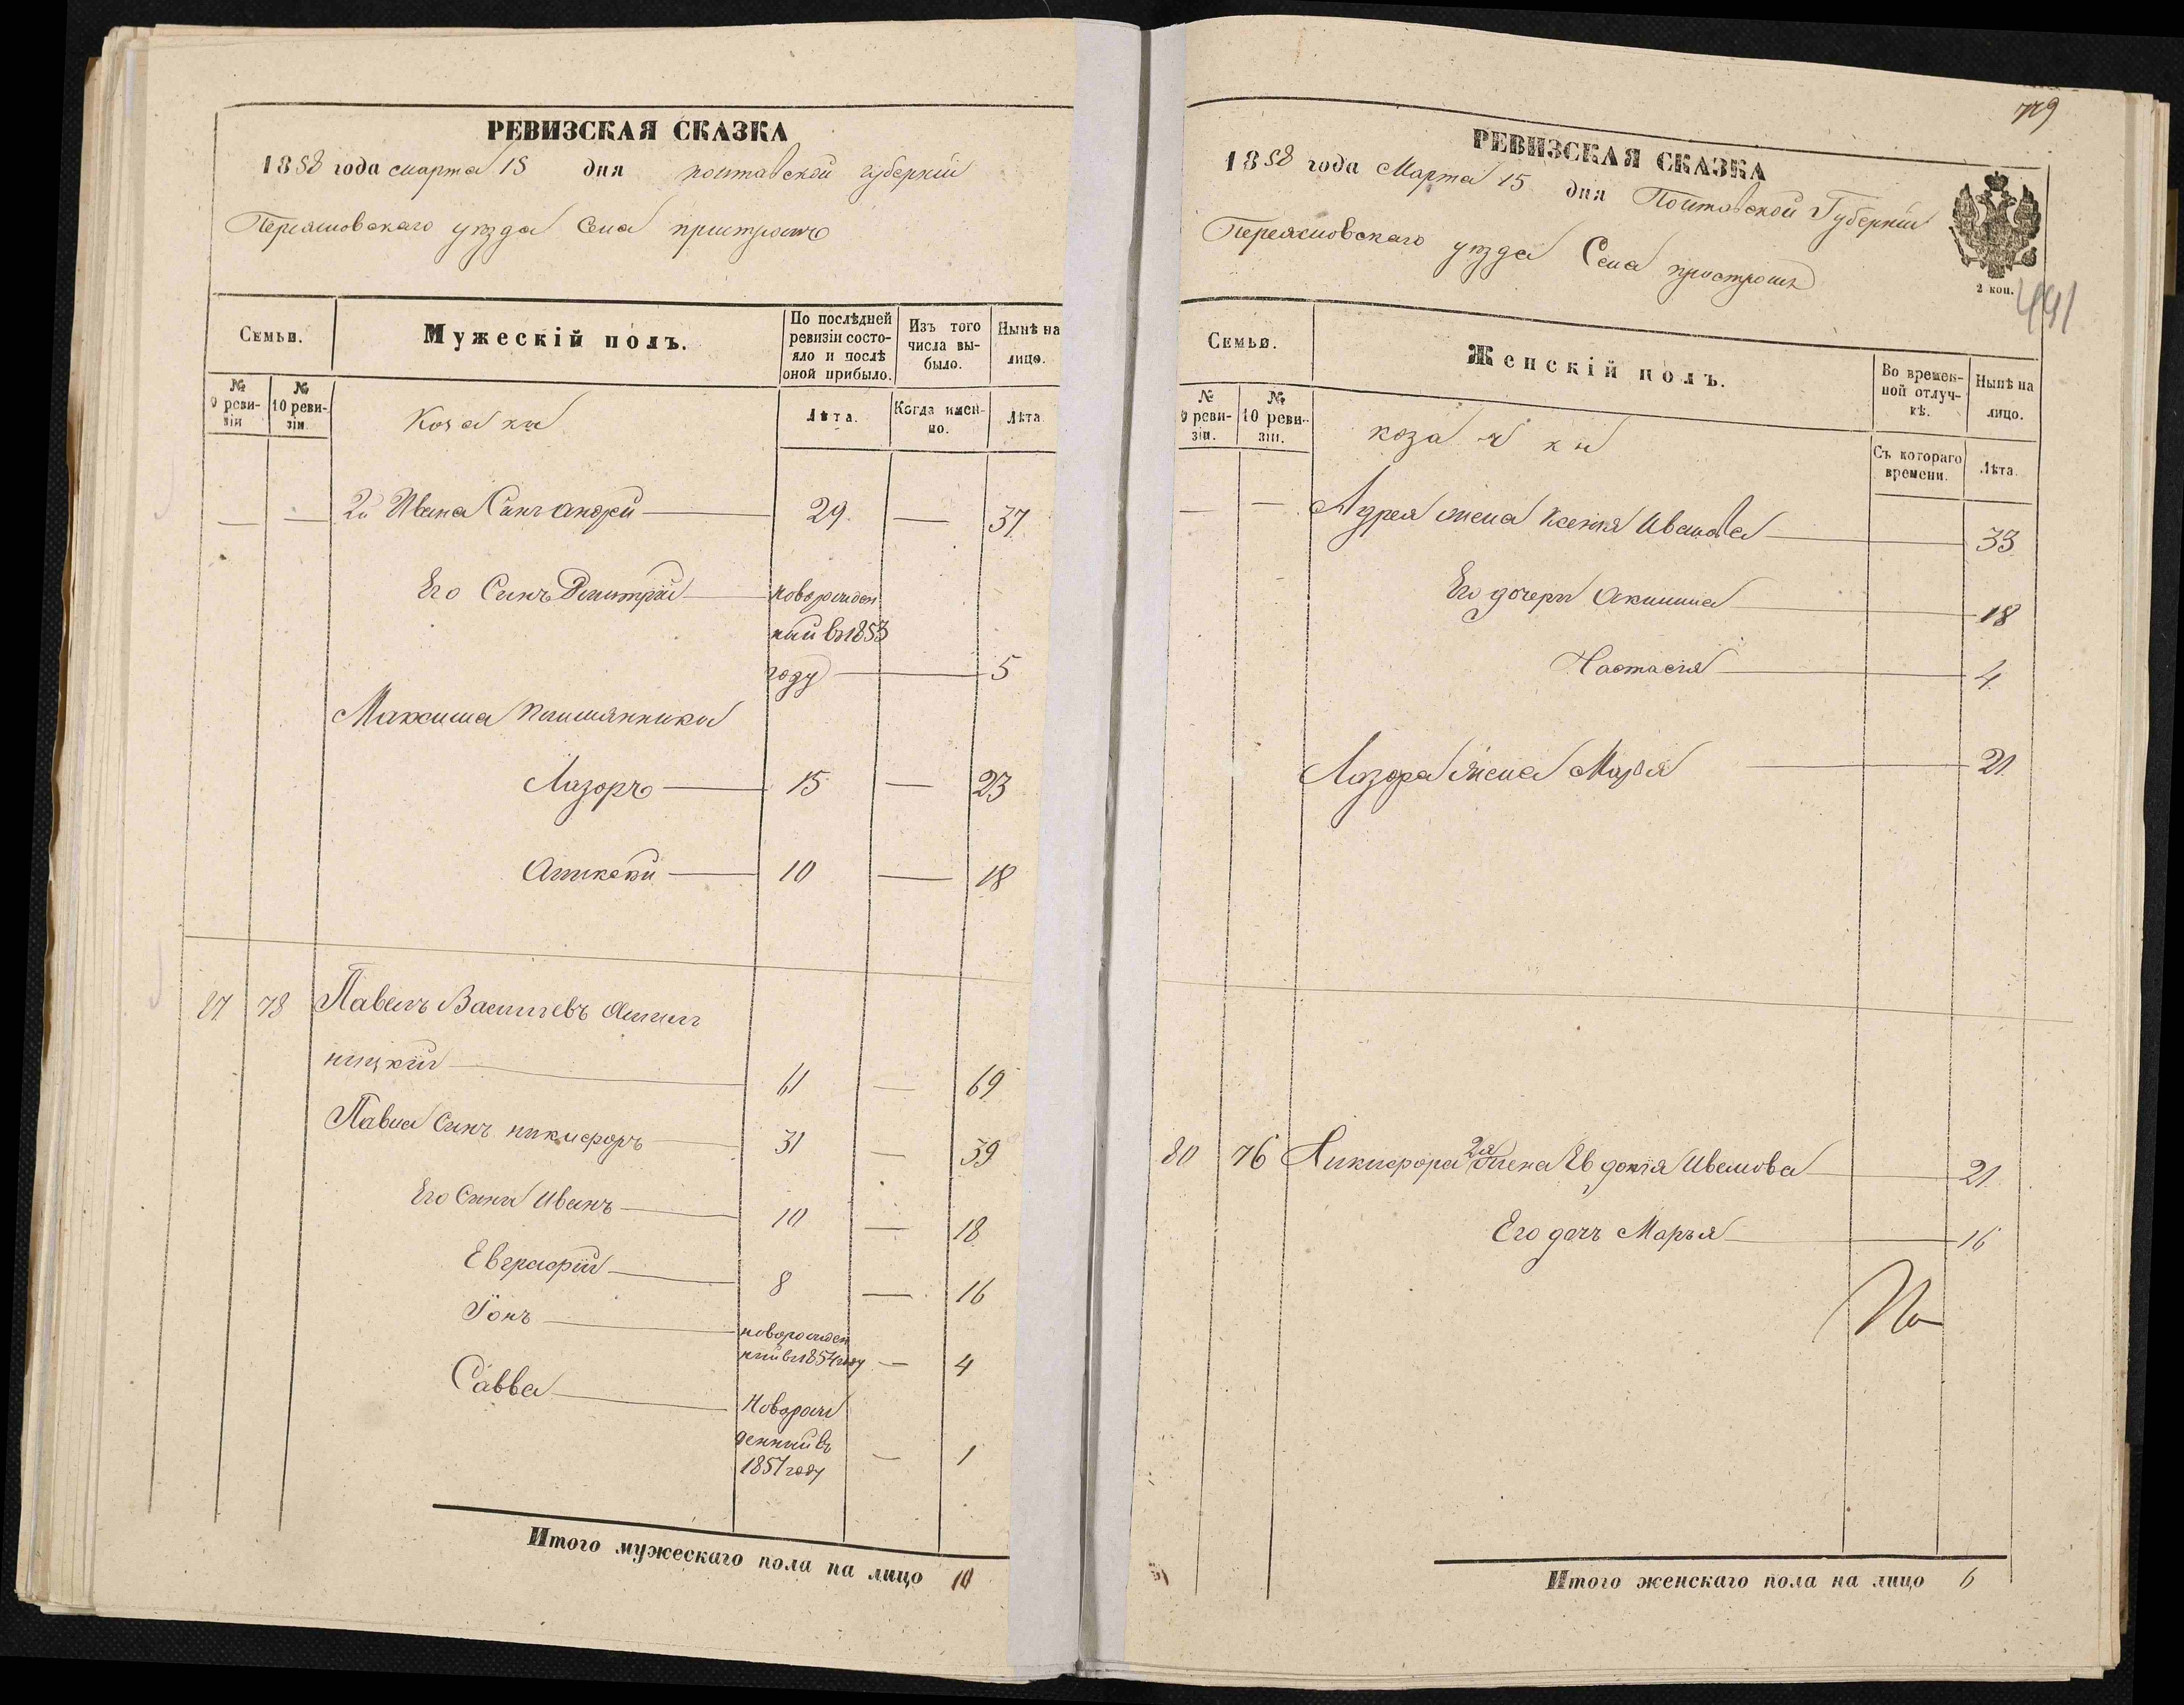 РЕВИЗСКАЯ СКАЗКА
1858 года марта 15 дня полтавской губернии
Переясловскаго уезда Села пристромъ
Семьи.
Мужескій полъ.
По послѣдней ревизіи состояло и послѣ оной прибыло.
Изъ того числа выбыло.
Нынѣ на лицо.
№ 9 ревизіи
№ 10 ревизіи.
Козаки
Лѣта.
Когда именно.
Лѣта
— — 2й Ивана Синъ андрей — 29 — 37
Его Синъ Дмитрій — новорожден
ний въ 1853
году — 5
Максима племянники
Лазоръ — 15 — 23
Алексѣй — 10 — 18
87 78 Павелъ Васильевъ
ницкій — 61 — 69
Павла Синъ никифоръ — 31 — 39
Его Сини Иванъ — 10 — 18
Евграфій — 8 — 16
Іонъ — новорожден
ний въ 1854 году — 4
Савва — Новорож
денний въ — 1
1857 году
Итого мужескаго пола на лицо 10
779
РЕВИЗСКАЯ СКАЗКА
1858 года Марта 15 дня Полтавской Губерніи
Переясловскаго уезда Села пристромъ
2 коп.
491
Семьи.
Женскій полъ.
Во временной отлучкѣ.
Нынѣ на лицо.
№ 9 ревизіи.
№ 10 ревизіи.
козачки
Съ котораго времени.
Лѣта.
— — Андрея жена Ксенія Иванова — 33
Его дочери Акилина — 18
Настасія — 4
Лазора жена Марія — 21
80 76 Никифора 2я жена Евдокія Иванова — 21
Его дочъ Марья — 16
Итого женскаго пола на лицо 6